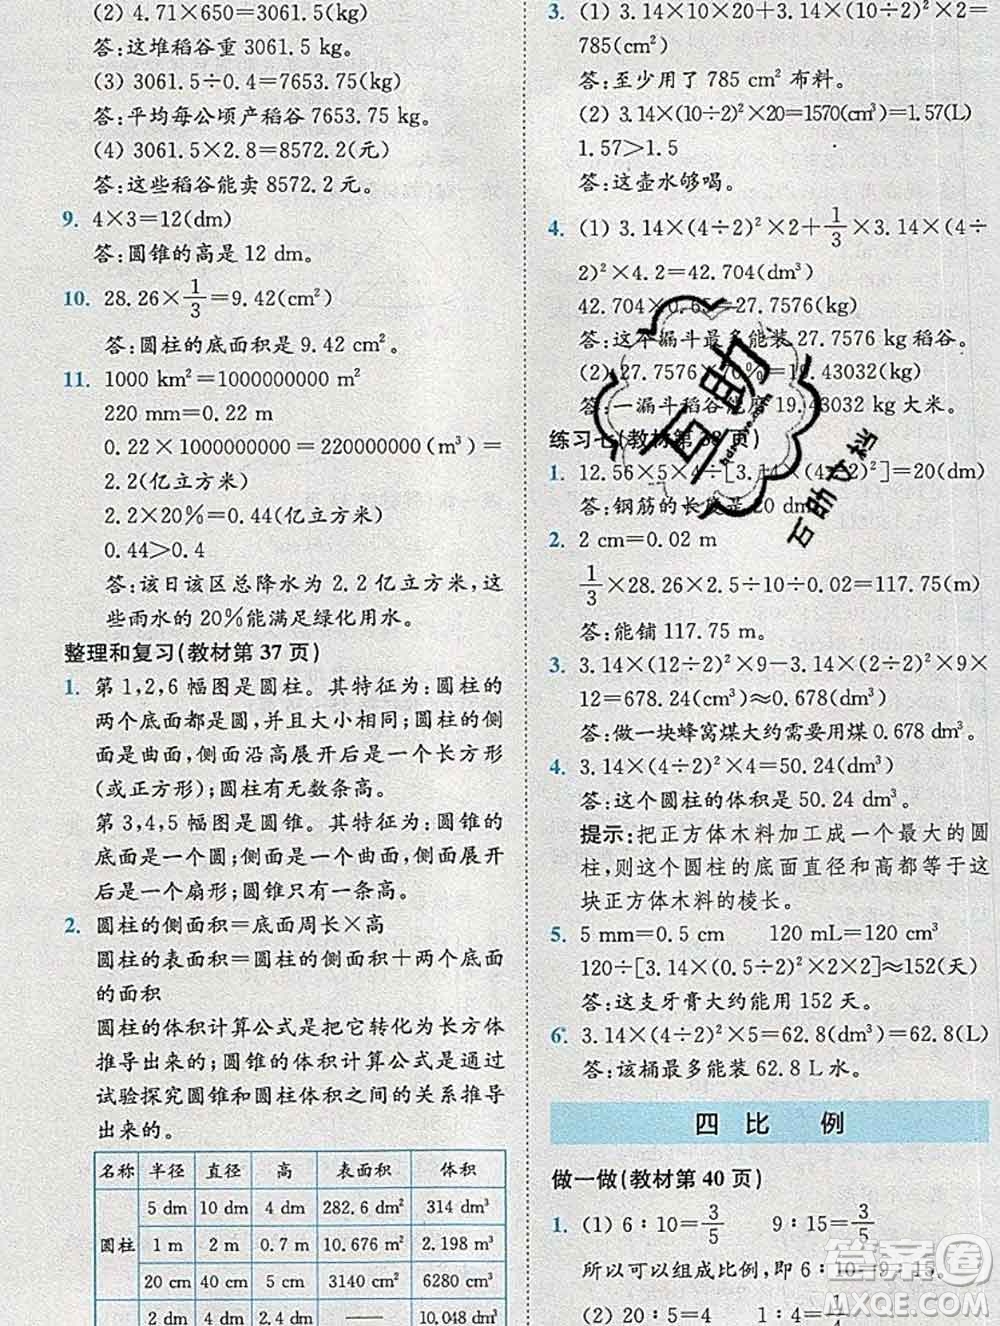 (2) 4.71×650=3061.5(kg)
答:这堆稻谷重 3061.5 kg.
(3) 3061.5÷0.4=7653.75(kg)
答:平均每公顷产稻谷 7653.75 kg。
(4) 3061.5×2.8=8572.2(元)
答:这些稻谷能卖 8572.2 元。
9. 4×3=12(dm)
答:圆锥的高是 12 dm。
10. 28.26×1/3=9.42(cm²)
答:圆柱的底面积是 9.42 cm²。
11. 1000 km²=1000000000 m²
220 mm=0.22 m
0.22×1000000000=220000000(m³)=
2.2(亿立方米)
2.2×20%=0.44(亿立方米)
0.44>0.4
答:该日该区总降水为 2.2 亿立方米,这
些雨水的 20%能满足绿化用水。
整理和复习(教材第 37 页)
1. 第 1,2,6 幅图是圆柱。其特征为:圆柱的
两个底面都是圆,并且大小相同;圆柱的侧
面是曲面,侧面沿高展开后是一个长方形
(或正方形);圆柱有无数条高。
第 3,4,5 幅图是圆锥。其特征为:圆锥的
底面是一个圆;侧面是一个曲面,侧面展开
后是一个扇形;圆锥只有一条高。
2. 圆柱的侧面积=底面周长×高
圆柱的表面积=圆柱的侧面积+两个底面
的面积
圆柱的体积计算公式是把它转化为长方体
推导出来的;圆锥的体积计算公式是通过
试验探究圆锥和圆柱体积之间的关系推导
出来的。
名称 半径 直径 高 表面积 体积
圆柱 5 dm 10 dm 4 dm 282.6 dm² 314 dm³
1 m 2 m 0.7 m 10.676 m² 2.198 m³
20 cm 40 cm 5 cm 3140 cm² 6280 cm³
2 dm 4 dm 2.4 dm — 10.048 dm³
3. (1) 3.14×10×20+3.14×(10÷2)²×2=
785(cm²)
答:至少用了 785 cm² 布料。
(2) 3.14×(10÷2)²×20=1570(cm³)=1.57(L)
1.57>1.5
答:这壶水够喝。
4. (1) 3.14×(4÷2)²×2+1/3×3.14×(4÷
2)²×4.2=42.704(dm³)
42.704×0.65=27.7576(kg)
答:这个漏斗最多能装 27.7576 kg 稻谷。
(2) 27.7576×70%=19.43032(kg)
答:一漏斗稻谷能磨 19.43032 kg 大米。
练习七(教材第 38 页)
1. 12.56×5×4÷[3.14×(4÷2)²]=20(dm)
答:钢筋的长度是 20 dm。
2. 2 cm=0.02 m
1/3×28.26×2.5÷10÷0.02=117.75(m)
答:能铺 117.75 m。
3. 3.14×(12÷2)²×9-3.14×(2÷2)²×9×
12=678.24(cm³)≈0.678(dm³)
答:做一块蜂窝煤大约需要用煤 0.678 dm³。
4. 3.14×(4÷2)²×4=50.24(dm³)
答:这个圆柱的体积是 50.24 dm³。
提示:把正方体木料加工成一个最大的圆
柱,则这个圆柱的底面直径和高都等于这
块正方体木料的棱长。
5. 5 mm=0.5 cm 120 mL=120 cm³
120÷[3.14×(0.5÷2)²×2×2]≈152(天)
答:这支牙膏大约能用 152 天。
6. 3.14×(4÷2)²×5=62.8(dm³)=62.8(L)
答:该桶最多能装 62.8 L 水。
四 比 例
做一做(教材第 40 页)
1. (1) 6∶10=3/5 9∶15=3/5
所以可以组成比例,即 6∶10=9∶15。
(2) 20∶5=4 1∶4=1/4
互助
hdzuoye.com
互助文档
答案圈
MXQE.COM